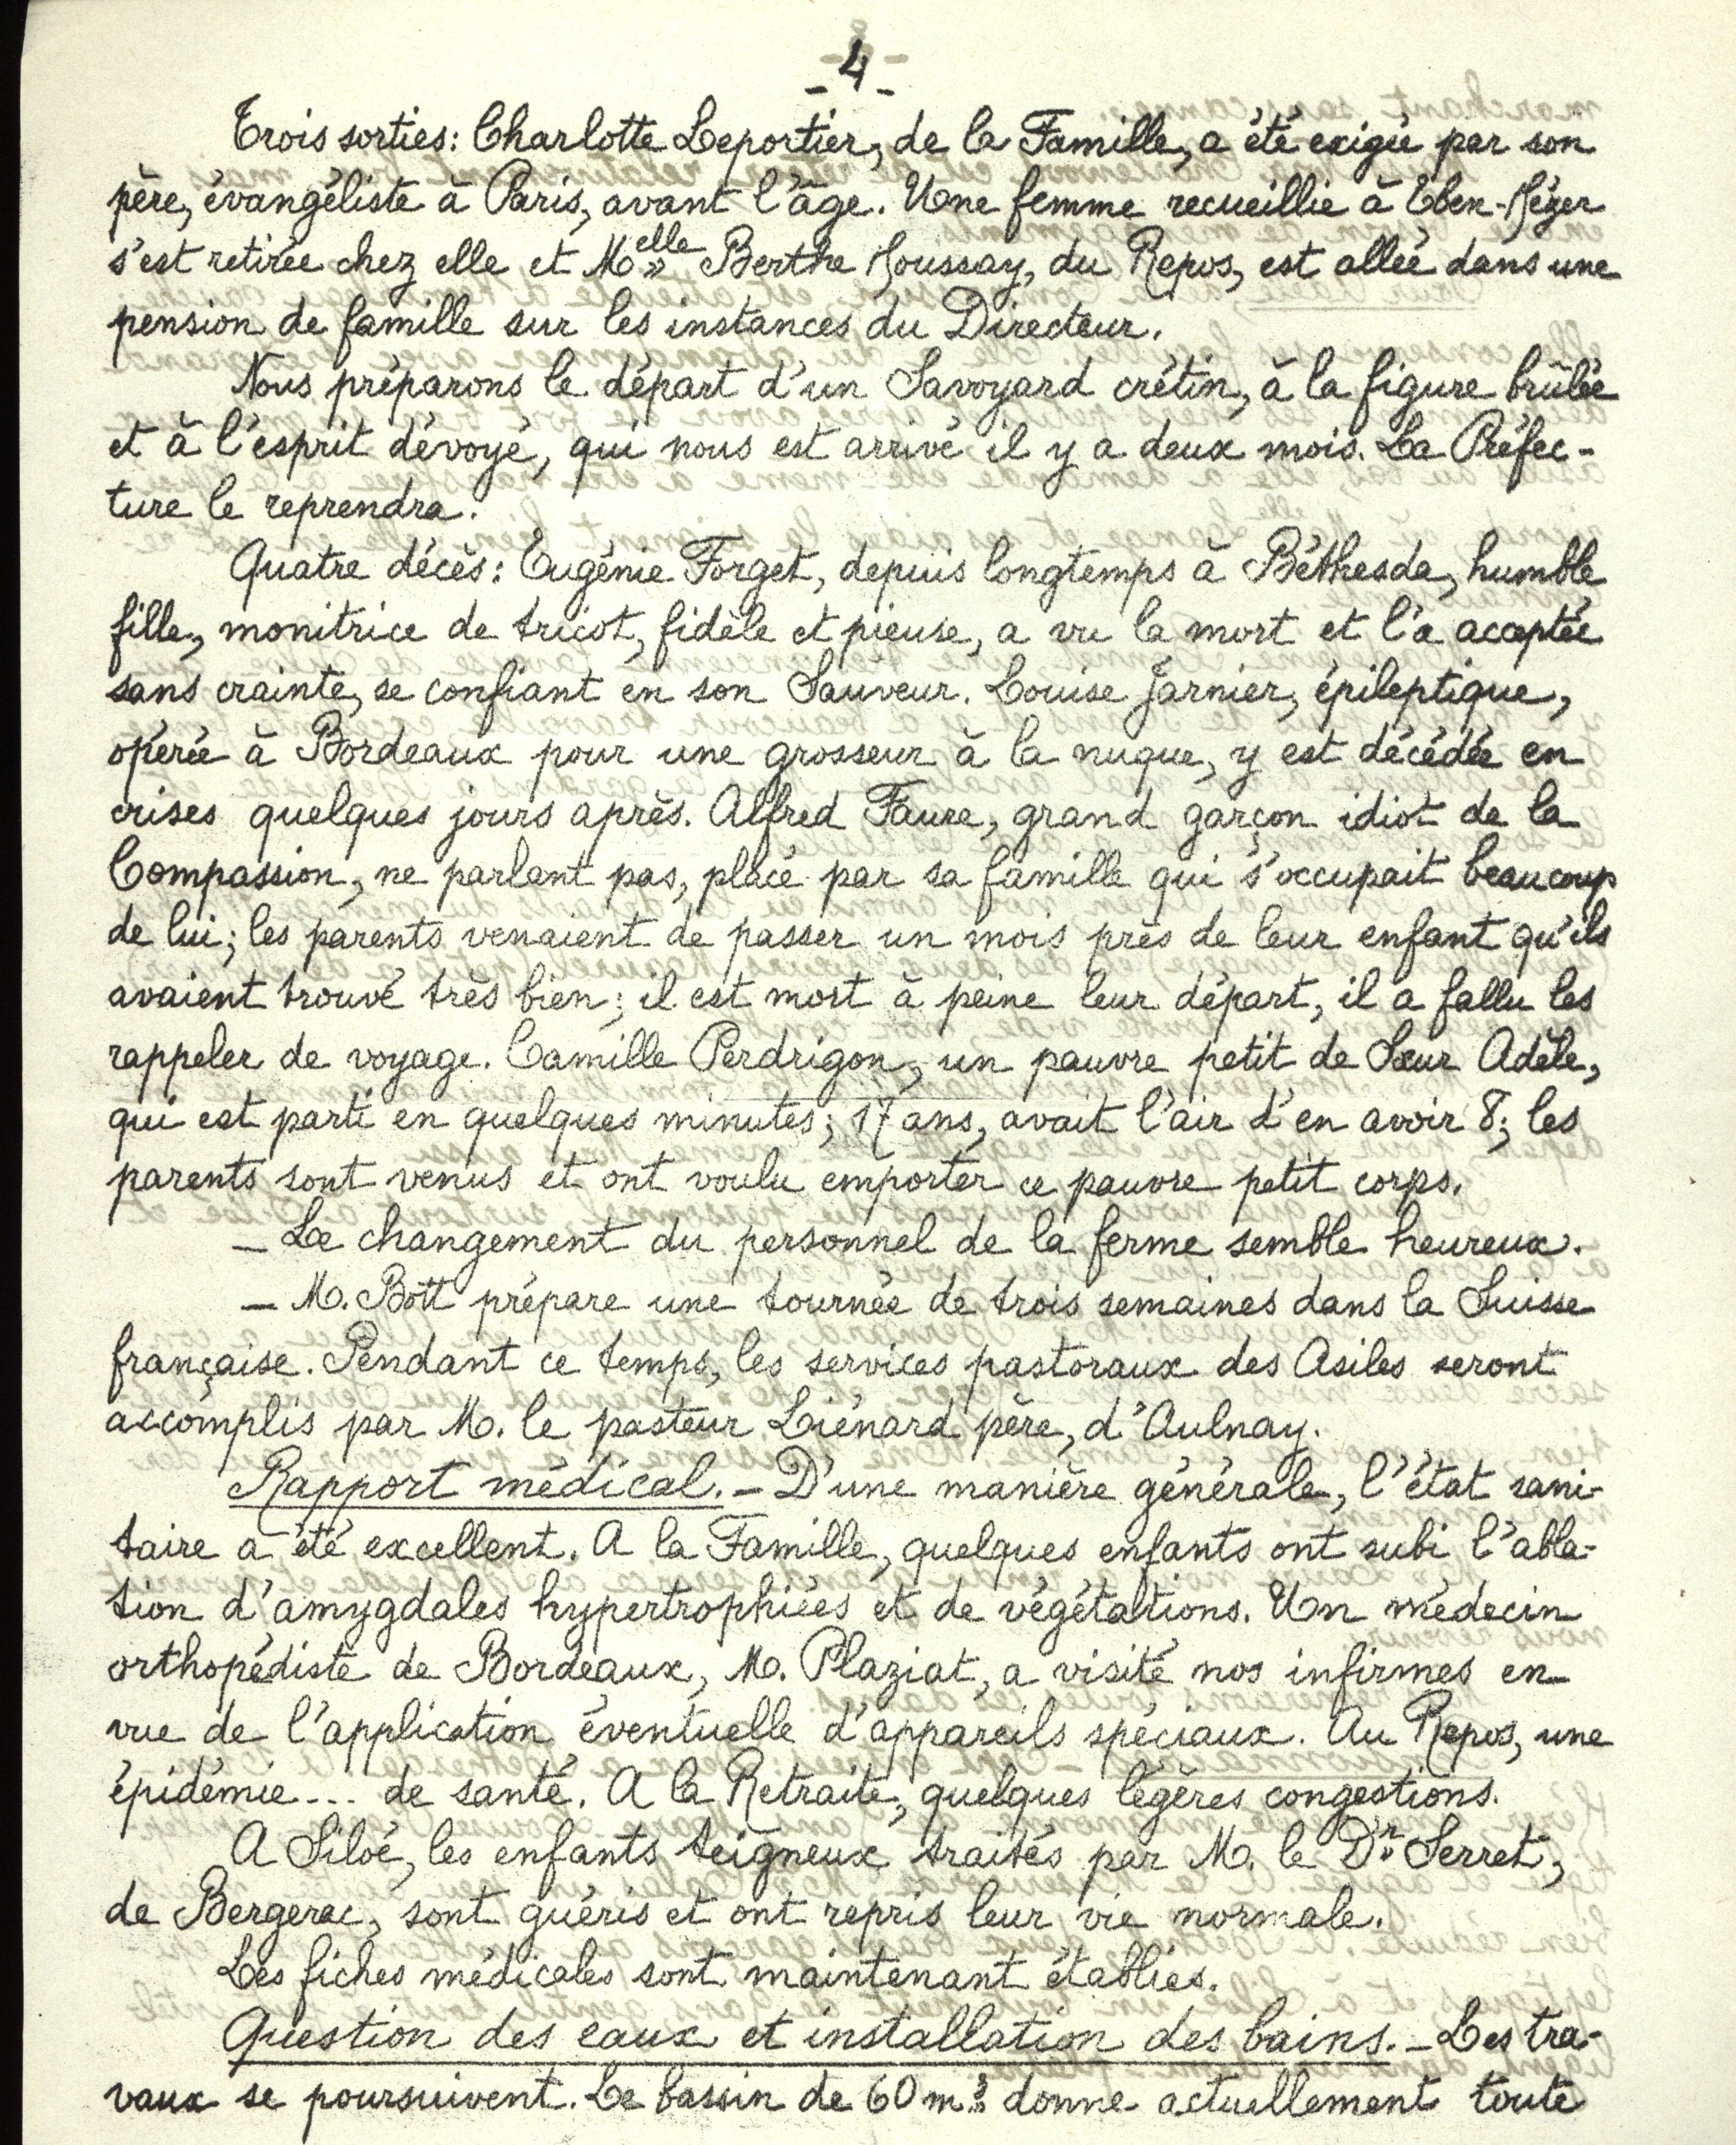 - 4 -
Trois sorties: Charlotte Leportier, de la Famille, a été exigée par son
père, évangéliste à Paris, avant l'âge. Une femme recueillie à Eben-Hézer
s'est retirée chez elle et Melle Berthe Houssay, du Repos, est allée dans une
pension de famille sur les instances du Directeur.
Nous préparons le départ d'un Savoyard crétin, à la figure brûlée
et à l'esprit dévoyé, qui nous est arrivé il y a deux mois. La Préfec-
ture le reprendra.
Quatre décès: Eugénie Forget, depuis longtemps à Béthesda, humble
fille, monitrice de tricot, fidèle et pieuse, a vu la mort et l'a acceptée
sans crainte, se confiant en son Sauveur. Louise Jarnier, épileptique,
opérée à Bordeaux pour une grosseur à la nuque, y est décédée en
crises quelques jours après. Alfred Faure, grand garçon idiot de la
Compassion, ne parlant pas, placé par sa famille qui s'occupait beaucoup
de lui; les parents venaient de passer un mois près de leur enfant qu'ils
avaient trouvé très bien; il est mort à peine leur départ, il a fallu les
rappeler de voyage. Camille Perdrigon, un pauvre petit de Sœur Adèle,
qui est parti en quelques minutes; 17 ans, avait l'air d'en avoir 8; les
parents sont venus et ont voulu emporter ce pauvre petit corps.
- Le changement du personnel de la ferme semble heureux.
- M. Bott prépare une tournée de trois semaines dans la Suisse
française. Pendant ce temps, les services pastoraux des Asiles seront
accomplis par M. le pasteur Liénard père, d'Aulnay.
Rapport médical. - D'une manière générale, l'état sani-
taire a été excellent. A la Famille, quelques enfants ont subi l'abla-
tion d'amygdales hypertrophiées et de végétations. Un médecin
orthopédiste de Bordeaux, M. Plaziat, a visité nos infirmes en
vue de l'application éventuelle d'appareils spéciaux. Au Repos, une
épidémie... de santé. A la Retraite, quelques légères congestions.
A Siloé, les enfants teigneux traités par M. le Dr. Serret,
de Bergerac, sont guéris et ont repris leur vie normale.
Les fiches médicales sont maintenant établies.
Question des eaux et installation des bains. - Les tra-
vaux se poursuivent. Le bassin de 60 m3 donne actuellement toute